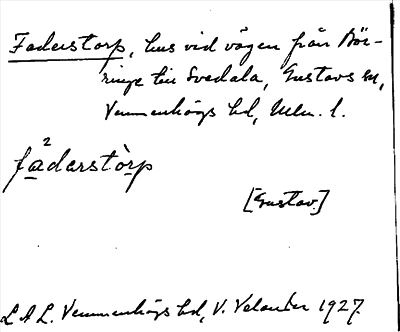 Faderstorp, hus vid vägen från Bör-
ringe till Svedala, Gustavs sn,
Vemmenhögs hd, Mlm. l.
fa²darstòrp
[Gustav.]
L A L. Vemmenhögs hd, V. Velander 1927.